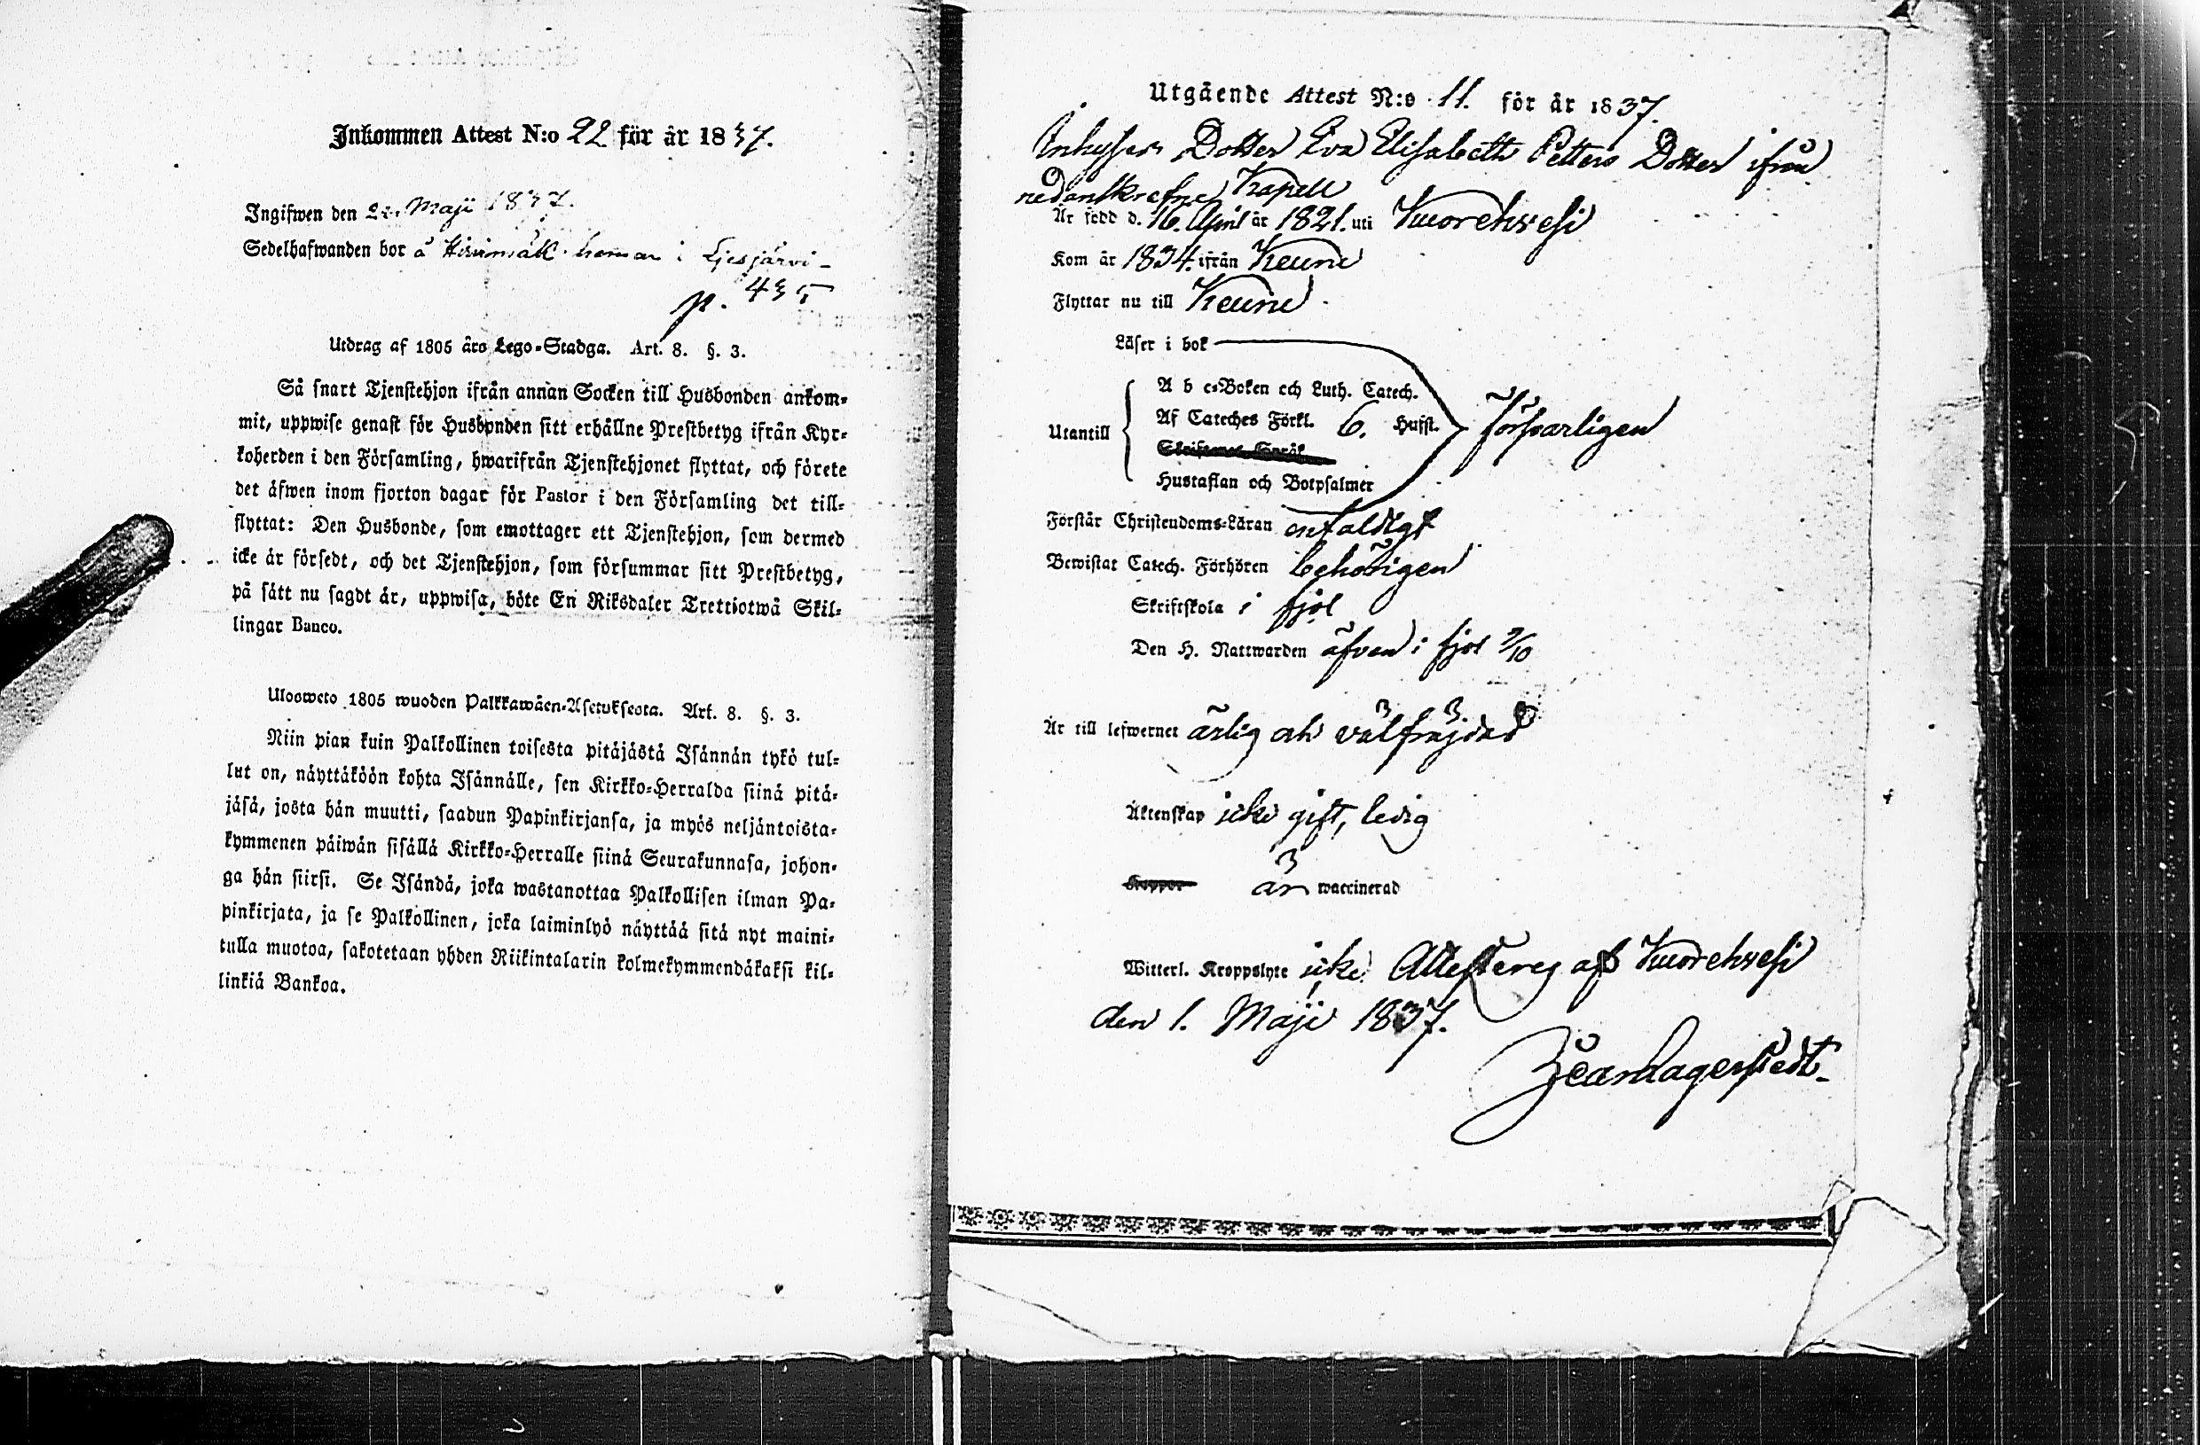 Inkommen Attest N:o 22 för år 1837.
Ingifwen den Maji 1837.
Sedelhafwanden bor å hemman i Liesjärvi
p. 435
Utdrag af 1805 års Lego-Stadga. Art. 8. §. 3.
Så snart Tjenstehjon ifrån annan Socken till Husbonden ankom-
mit, uppwise genast för Husbonden sitt erhållne Prestbetyg ifrån Kyr-
koherden i den Församling, hwarifrån Tjenstehjonet flyttat, och förete
det äfwen inom fjorton dagar för Pastor i den Församling det till-
flyttat: Den Husbonde, som emottager ett Tjenstehjon, som dermed
icke är försedt, och det Tjenstehjon, som försummar sitt Prestbetyg,
på sätt nu sagdt är, uppwisa, böte En Riksdaler Trettiotwå Skil-
lingar Banco.
Ulosweto 1805 wuoden Palkkawäen-Asetuksesta. Art. 8. §. 3.
Niin pian kuin Palkollinen toisesta pitäjästä Isännän tykö tul-
lut on, näyttäköön kohta Isännälle, sen Kirkko-Herralda siinä pitä-
jäsä, josta hän muutti, saadun Papinkirjansa, ja myös neljäntoista-
kymmenen päiwän sisällä Kirkko-Herralle siinä Seurakunnasa, johon-
ga hän siirsi. Se Isändä, joka wastanottaa Palkollisen ilman Pa-
pinkirjata, ja se Palkollinen, joka laiminlyö näyttää sitä nyt maini-
tulla muotoa, sakotetaan yhden Riikintalarin kolmekymmendäkaksi kil-
linkiä Bankoa.
Utgående Attest N:o 11. för år 1837.
Inhyses Dotter Eva Elisabeth Petters Dotter ifrån
nedanskrefne Kapell
Är född d. 16. April år 1821. uti Kuorehvesi
Kom år 1834. ifrån Keuru
Flyttar nu till Keuru
Läser i bok
Utantill
A b c-Boken och Luth. Catech.
Af Cateches Förkl. 6. Hufst. försvarligen
Skriftenes Språk
Hustaflan och Botpsalmer
Förstår Christendoms-Läran enfaldigt
Bewistat Catech. Förhören behörigen
Skriftskola i fjol
Den H. Nattwarden äfven i fjol 9/10
Är till lefwernet ärlig och välfräjdad
Äktenskap icke gift, ledig
är waccinerad
Witterl. Kroppslyte icke Attesteras af Kuorehvesi
den 1. Maji 1837.